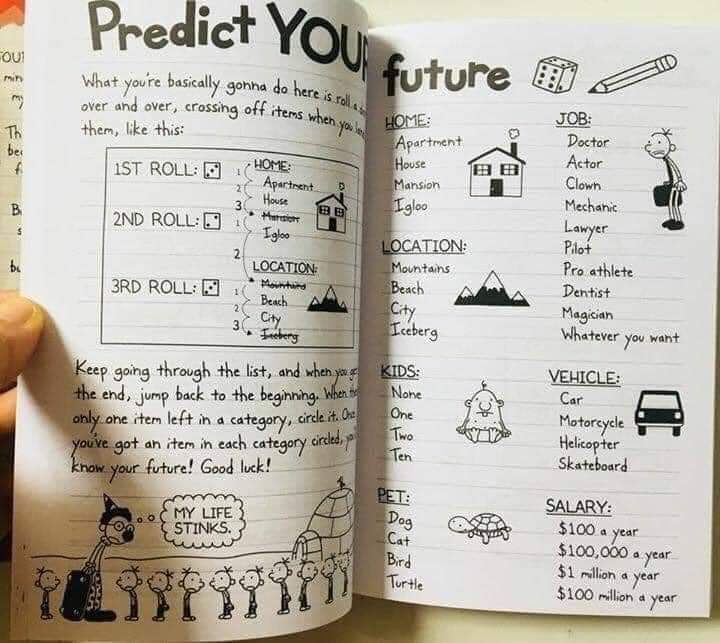 Predict YOUR
What you're basically gonna do here is roll a
over and over, crossing off items when you
them, like this:
1ST ROLL:
2ND ROLL:
3RD ROLL:
1
2
3
1
2
1
2
3
HOME:
Apartment
House
Mansion
Igloo
LOCATION:
Mountains
Beach
City
Iceberg
Keep going through the list, and when you
the end, jump back to the beginning. When
only one item left in a category, circle it.
you've got an item in each category circled,
know your future! Good luck!
MY LIFE
STINKS.
future
HOME:
Apartment
House
Mansion
Igloo
LOCATION:
Mountains
Beach
City
Iceberg
KIDS:
None
One
Two
Ten
PET:
Dog
Cat
Bird
Turtle
JOB:
Doctor
Actor
Clown
Mechanic
Lawyer
Pilot
Pro athlete
Dentist
Magician
Whatever you want
VEHICLE:
Car
Motorcycle
Helicopter
Skateboard
SALARY:
$100 a year
$100,000 a year
$1 million a year
$100 million a year